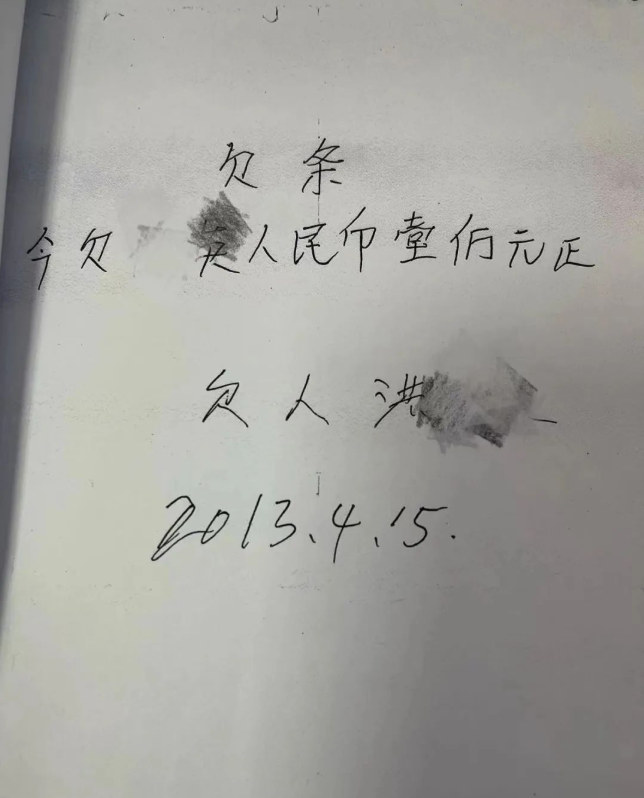 欠条
今欠 英人民币壹佰元正
欠人 洪
2013.4.15.